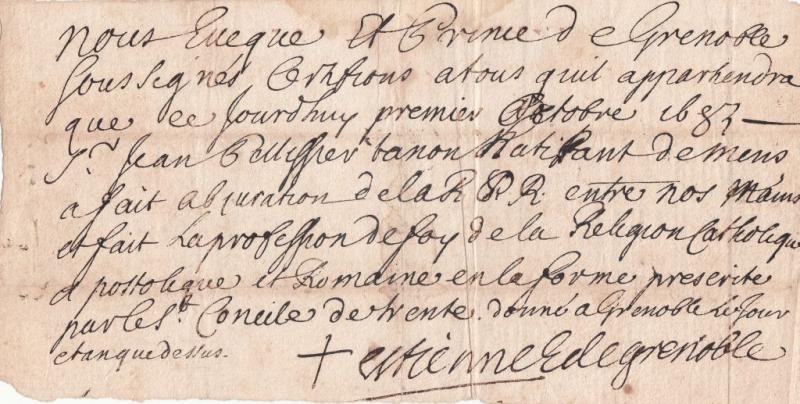 nous Eueque Et Prince de Grenoble
soussignés Certifions a tous quil appartiendra
que ce Jourdhuy premier Octobre 1683
Sr. Jean Pellissier tanon Natif de mens
a fait abjuration de la R. P. R. entre nos Mains
et fait La profession de foy de la Religion Catholique
apostolique et Romaine en la forme prescrite
par le St. Concile de trente. donné a Grenoble Le Jour
et an que dessus.
+ estienne E de grenoble